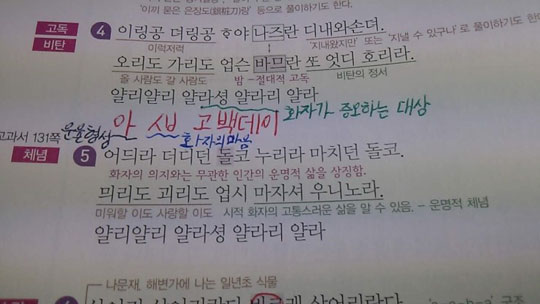 "이끼 묻은 은장도(銀粧刀)랑" 등으로 풀이하기도 한다.
고독
비탄
4 이링공 뎌링공 ᄒᆞ야 나즈란 디내와손뎌.
이럭저럭
"지내왔지만" 또는 "지낼 수 있구나"로 풀이하기도 한다.
오리도 가리도 업슨 바므란 ᄯᅩ 엇디 호리라.
올 사람도 갈 사람도 밤-절대적 고독 비탄의 정서
얄리얄리 얄라셩 얄라리 얄라
화자가 증오하는 대상
아 고백데이
화자의 마음
교과서 131쪽 운율형성
체념
5 어듸라 더디던 돌코 누리라 마치던 돌코.
화자의 의지와는 무관한 인간의 운명적 삶을 상징함.
믜리도 괴리도 업시 마자셔 우니노라.
미워할 이도 사랑할 이도 시적 화자의 고통스러운 삶을 알 수 있음. - 운명적 체념
얄리얄리 얄라셩 얄라리 얄라
나문재, 해변가에 나는 일년초 식물